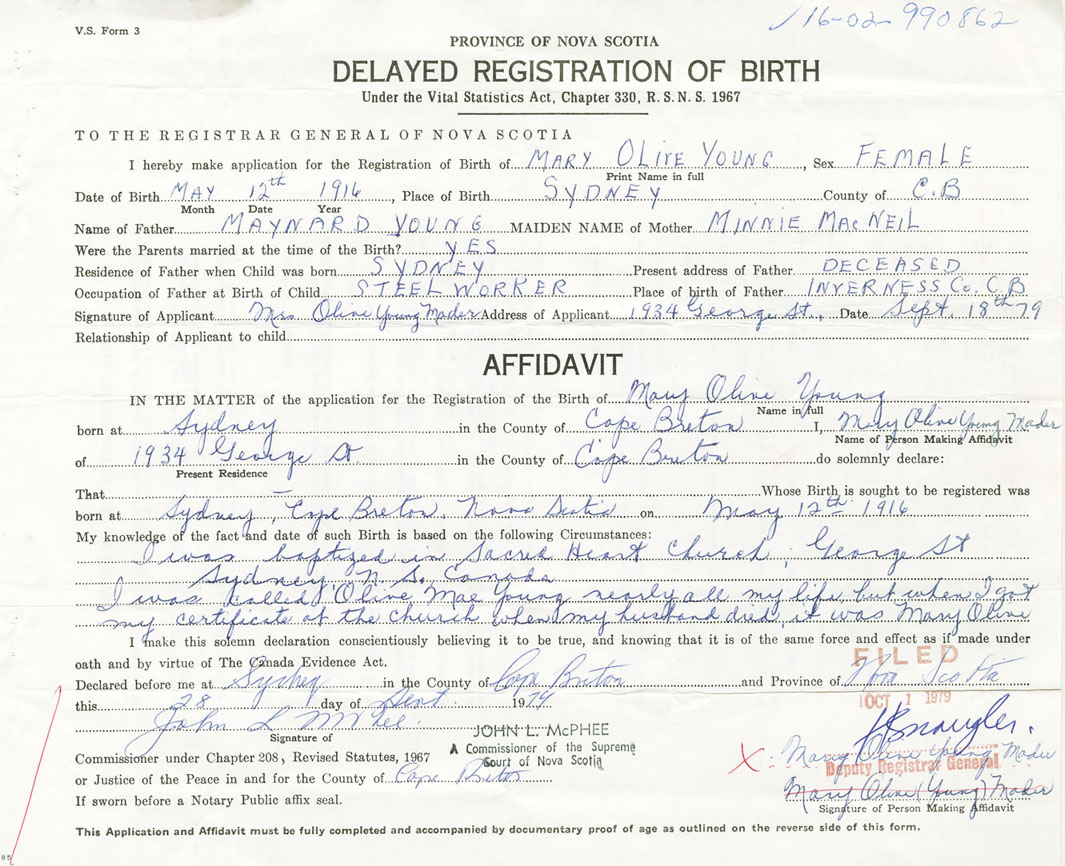 V.S. Form 3
16-02-990862
PROVINCE OF NOVA SCOTIA
DELAYED REGISTRATION OF BIRTH
Under the Vital Statistics Act, Chapter 330, R.S.N.S. 1967
TO THE REGISTRAR GENERAL OF NOVA SCOTIA
I hereby make application for the Registration of Birth of MARY OLIVE YOUNG, Sex FEMALE
Print Name in full
Date of Birth MAY 12th 1916, Place of Birth SYDNEY County of C.B
Month Date Year
Name of Father MAYNARD YOUNG MAIDEN NAME of Mother MINNIE MACNEIL
Were the Parents married at the time of the Birth? YES
Residence of Father when Child was born SYDNEY Present address of Father DECEASED
Occupation of Father at Birth of Child STEELWORKER Place of birth of Father INVERNESS Co. C.B
Signature of Applicant Mrs Olive Young Mader Address of Applicant 1934 George St., Date Sept. 18th 79
Relationship of Applicant to child
AFFIDAVIT
IN THE MATTER of the application for the Registration of the Birth of Mary Olive Young
Name in full
born at Sydney in the County of Cape Breton I, Mary Olive Young Mader
Name of Person Making Affidavit
of 1934 George St in the County of Cape Breton do solemnly declare:
Present Residence
That Whose Birth is sought to be registered was
born at Sydney, Cape Breton, Nova Scotia on May 12th 1916
My knowledge of the fact and date of such Birth is based on the following Circumstances:
I was baptized in Sacred Heart Church, George St
Sydney N.S. Canada
I was called Olive Mae Young nearly all my life but when I got
my certificate at the Church when my husband died, it was Mary Olive
I make this solemn declaration conscientiously believing it to be true, and knowing that it is of the same force and effect as if made under
oath and by virtue of The Canada Evidence Act.
FILED
Declared before me at Sydney in the County of Cape Breton and Province of Nova Scotia
this 28 day of Sept. 1979
OCT 1 1979
John L McPhee
JOHN L. McPHEE
Signature of
A Commissioner of the Supreme
Commissioner under Chapter 208, Revised Statutes, 1967
Court of Nova Scotia
X Mary Olive Young Mader
Deputy Registrar General
or Justice of the Peace in and for the County of Cape Breton
Mary Olive (Young) Mader
If sworn before a Notary Public affix seal.
Signature of Person Making Affidavit
This Application and Affidavit must be fully completed and accompanied by documentary proof of age as outlined on the reverse side of this form.